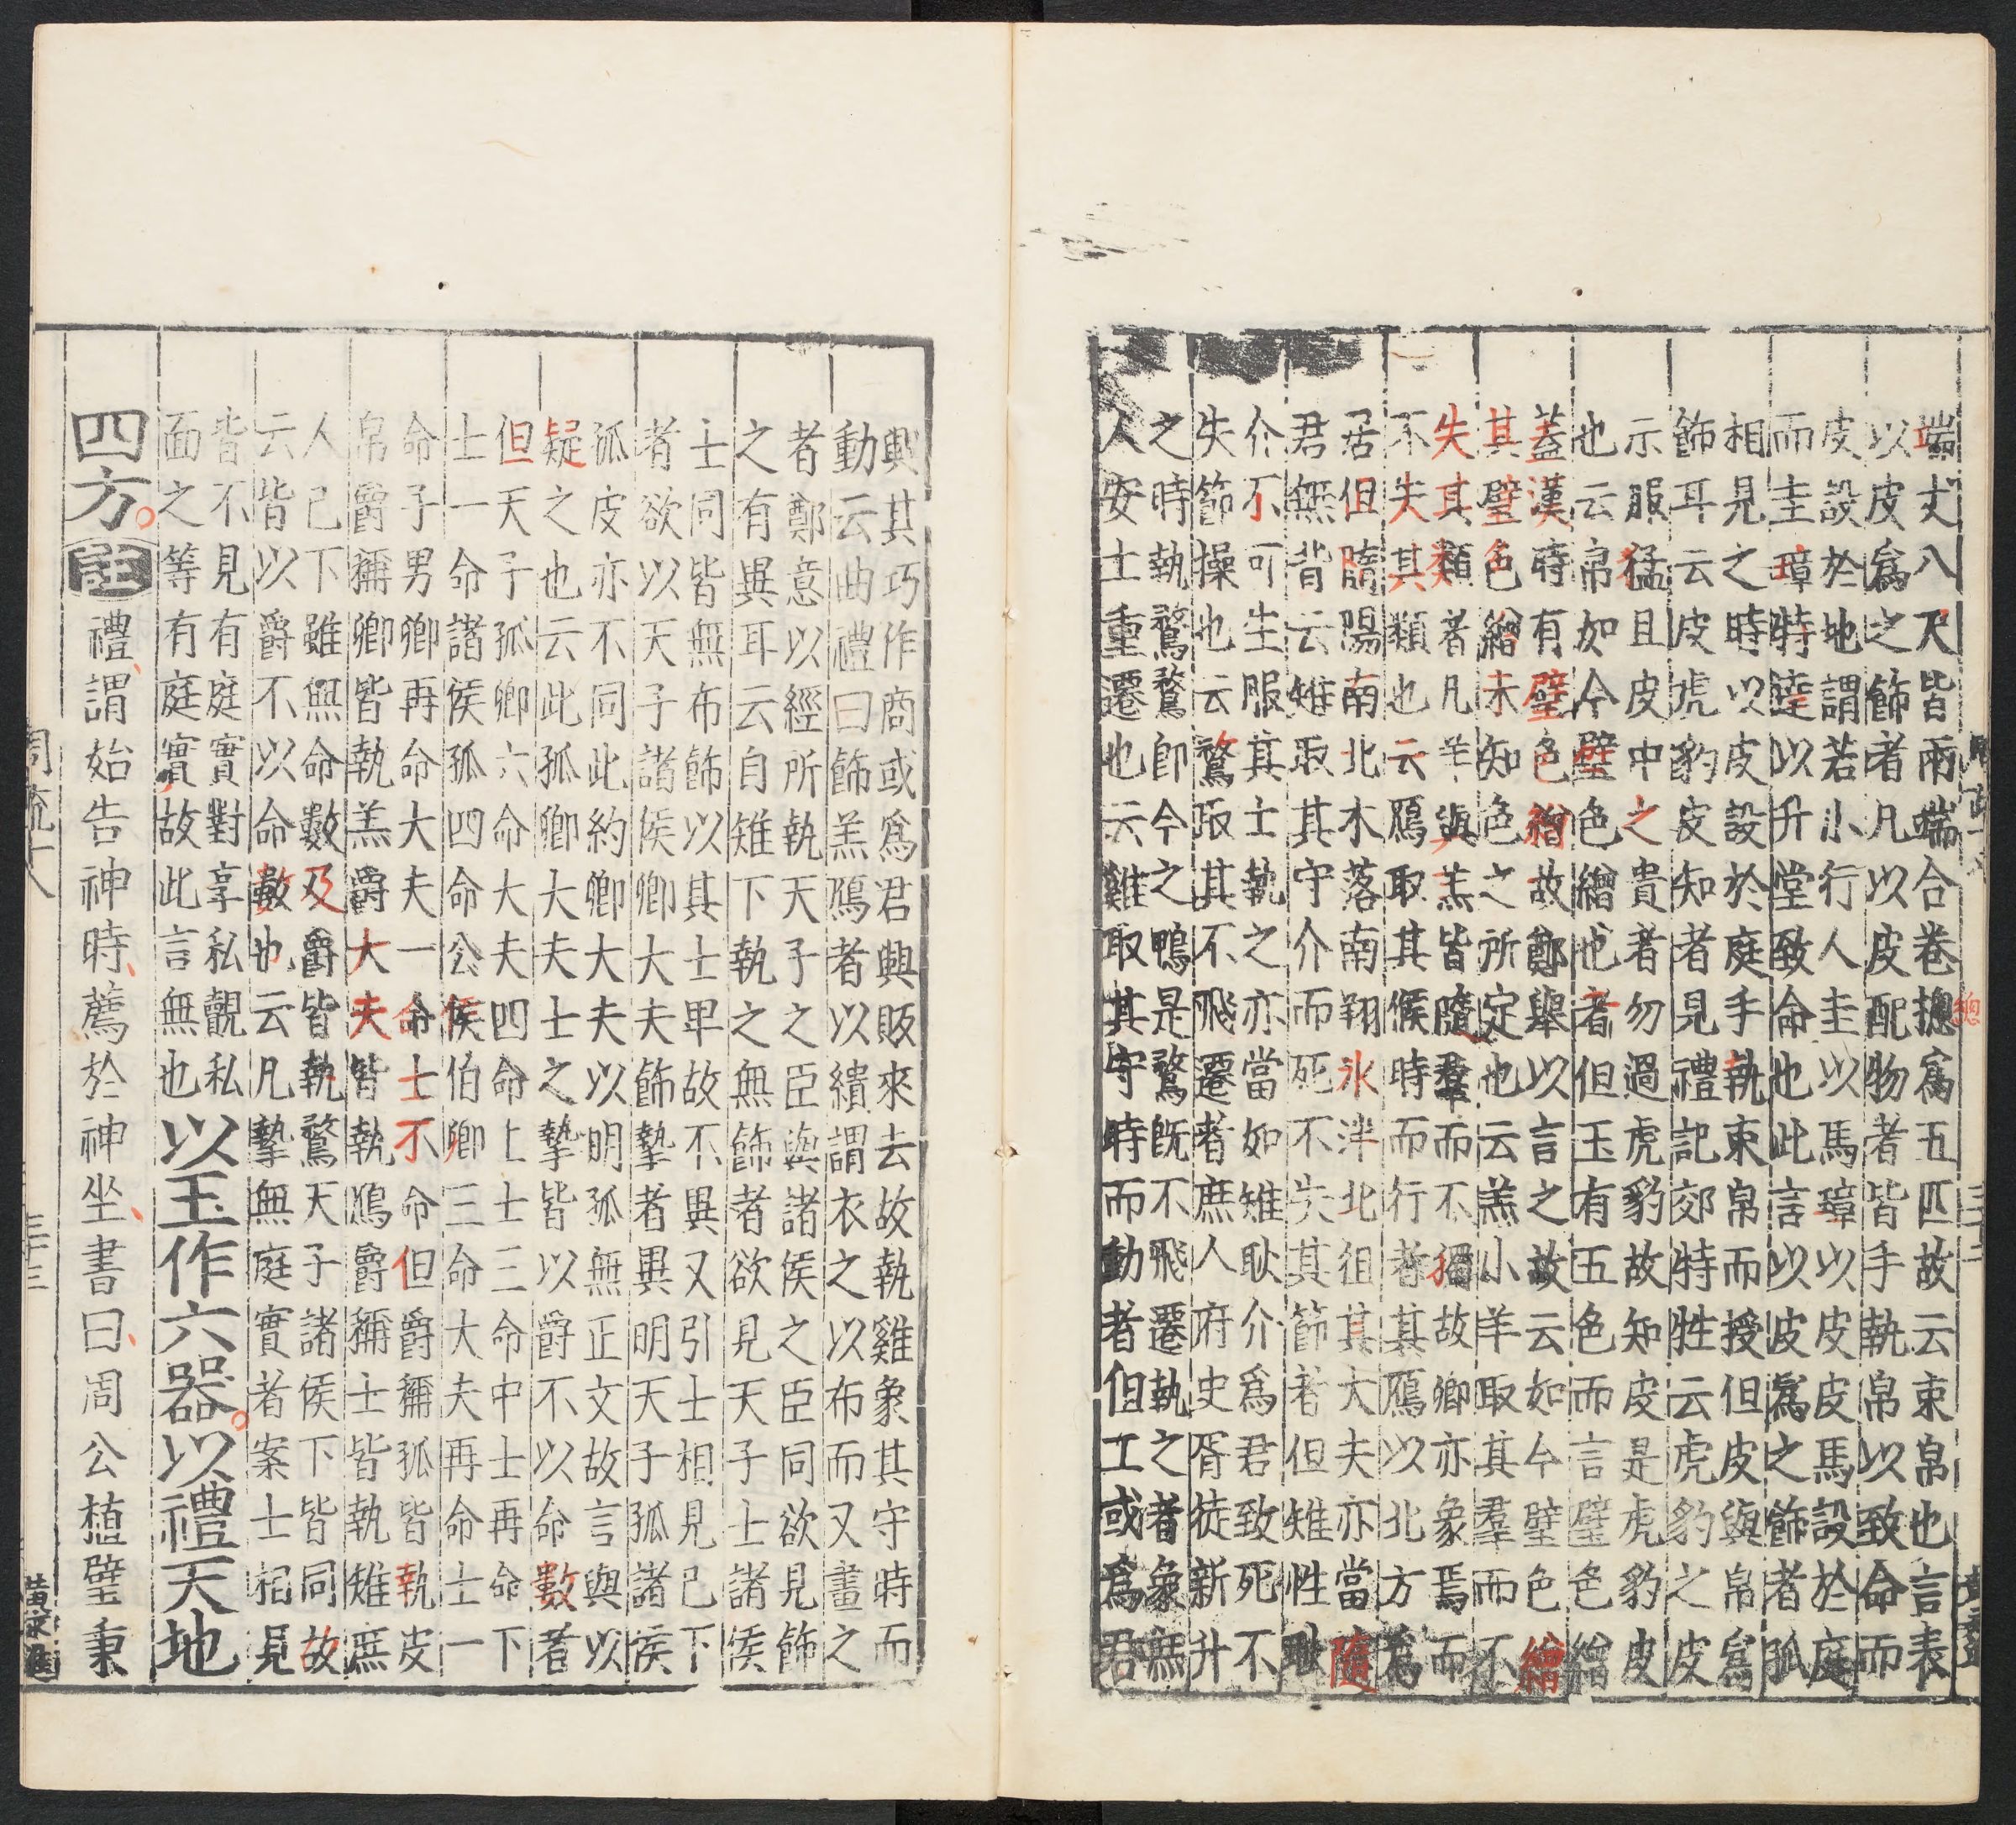 端丈八尺皆兩端合卷摠爲五匹故云束帛也言表
總
以皮爲之飾者凡以皮配物者皆手執帛以致命而
皮設於地謂若小行人圭以馬璋以皮皮馬設於庭
而圭璋特達以升堂致命也此言以皮爲之飾者孤
相見之時以皮設於庭手執束帛而授但皮與帛爲
飾耳云皮虎豹皮知者見禮記郊特牲云虎豹之皮
示服猛且皮中之貴者勿過虎豹故知皮是虎豹皮
也云帛如今璧色繒也者但玉有五色而言璧色繒
蓋漢時有璧色繒故鄭舉以言之故云如今璧色繒
其璧色繒未知色之所定也云羔小羊取其羣而不
失其類者凡羊與羔皆隨羣而不獨故卿亦象焉而
不失其類也云鴈取其候時而行者其鴈以北方爲
居但隨陽南北木落南翔氷泮北徂其大夫亦當隨
君無背云雉取其守介而死不失其節者但雉性耿
介不可生服其士執之亦當如雉耿介爲君致死不
失節操也云鶩取其不飛遷者庶人府史胥徒新升
之時執鶩鶩卽今之鴨是鶩旣不飛遷執之者象庶
人安土重遷也云雞取其守時而動者但工或爲君
興其巧作商或爲君興販來去故執雞象其守時而
動云曲禮曰飾羔鴈者以繢謂衣之以布而又畫之
者鄭意以經所執天子之臣與諸侯之臣同欲見飾
之有異耳云自雉下執之無飾者欲見天子士諸侯
士同皆無布飾以其士卑故不異又引士相見已下
者欲以天子諸侯卿大夫飾摯者異明天子孤諸侯
孤皮亦不同此約卿大夫以明孤無正文故言與以
疑之也云此孤卿大夫士之摯皆以爵不以命數者
但天子孤卿六命大夫四命上士三命中士再命下
士一命諸侯孤四命公侯伯卿三命大夫再命士一
命子男卿再命大夫一命士不命但爵稱孤皆執皮
帛爵稱卿皆執羔爵大夫皆執鴈爵稱士皆執雉庶
人已下雖無命數及爵皆執鶩天子諸侯下皆同故
云皆以爵不以命數也云凡摯無庭實者案士相見
皆不見有庭實對享私覿私
面之等有庭實故此言無也
以玉作六器以禮天地
四方註禮謂始告神時薦於神坐書曰周公植璧秉
周疏十八
三十三